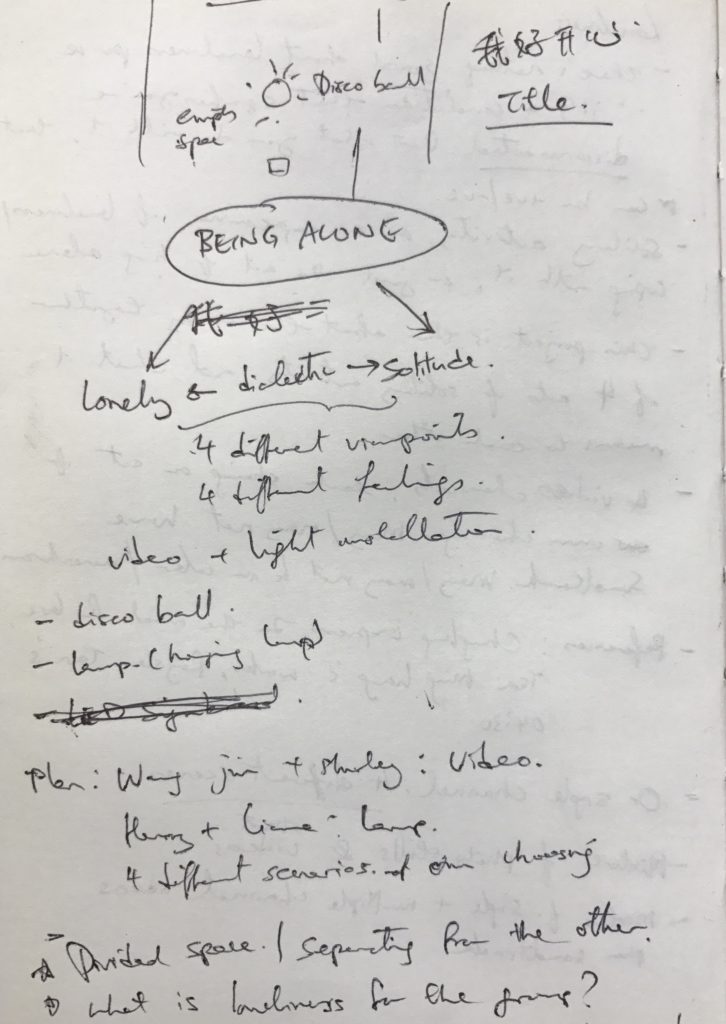 我好开心
Title.
Disco ball
empty
space
BEING ALONE
我好
Lonely ← dialectic → Solitude.
4 different viewpoints.
4 different feelings.
video + light installation.
- disco ball.
- lamp-changing lamp
Plan: Wang jin + Shirley: Video.
Henry + : Lamp.
4 different scenarios of own choosing
Divided space. / separating from the other.
what is loneliness for the group?